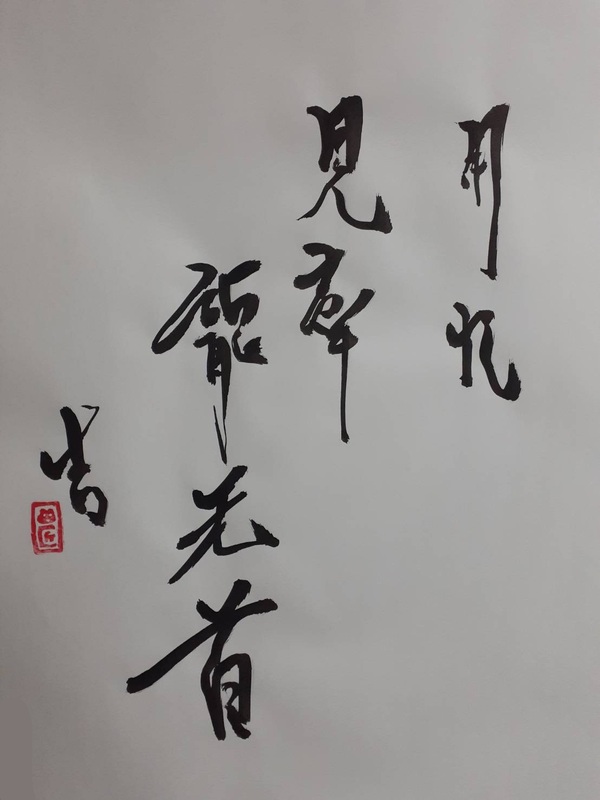 用九
見群
龍无首
吉